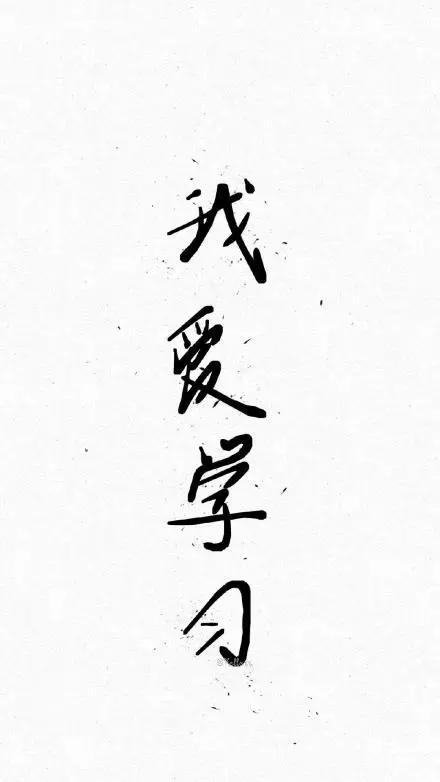 我爱学习